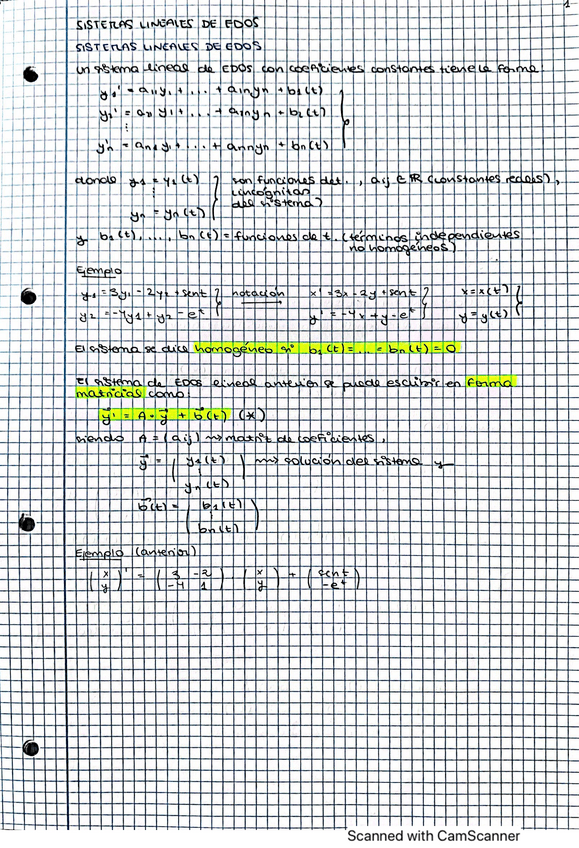 1
SISTEMAS LINEALES DE EDOS
SISTEMAS LINEALES DE EDOS
Un sistema lineal de EDOS con coeficientes constantes tiene la forma:
y₁' = a₁₁y₁ + ... + a₁nyn + b₁(t)
y₂' = a₂₁y₁ + ... + a₂nyn + b₂(t)
⋮
yn' = an₁y₁ + ... + annyn + bn(t)
donde y₁ = y₁(t) son funciones de t, aij ∈ ℝ (constantes reales),
⋮ (incógnitas
yn = yn(t) del sistema)
y b₁(t), ..., bn(t) = funciones de t. (términos independientes
no homogéneos)
Ejemplo
y₁ = 3y₁ - 2y₂ + sent notación x' = 3x - 2y + sent x = x(t)
y₂ = -4y₁ + y₂ - eᵗ y' = -4x + y - eᵗ y = y(t)
El sistema se dice homogéneo si b₁(t) = ... = bn(t) = 0
El sistema de EDOS lineal anterior se puede escribir en forma
matricial como:
y⃗' = A · y⃗ + b⃗(t) (*)
siendo A = (aij) ⇝ matriz de coeficientes,
y⃗ = ( y₁(t) ⋮ yn(t) ) ⇝ solución del sistema y
b⃗(t) = ( b₁(t) ⋮ bn(t) )
Ejemplo (anterior)
(x y)' = (3 -2 -4 1) · (x y) + (sent -eᵗ)
Scanned with CamScanner